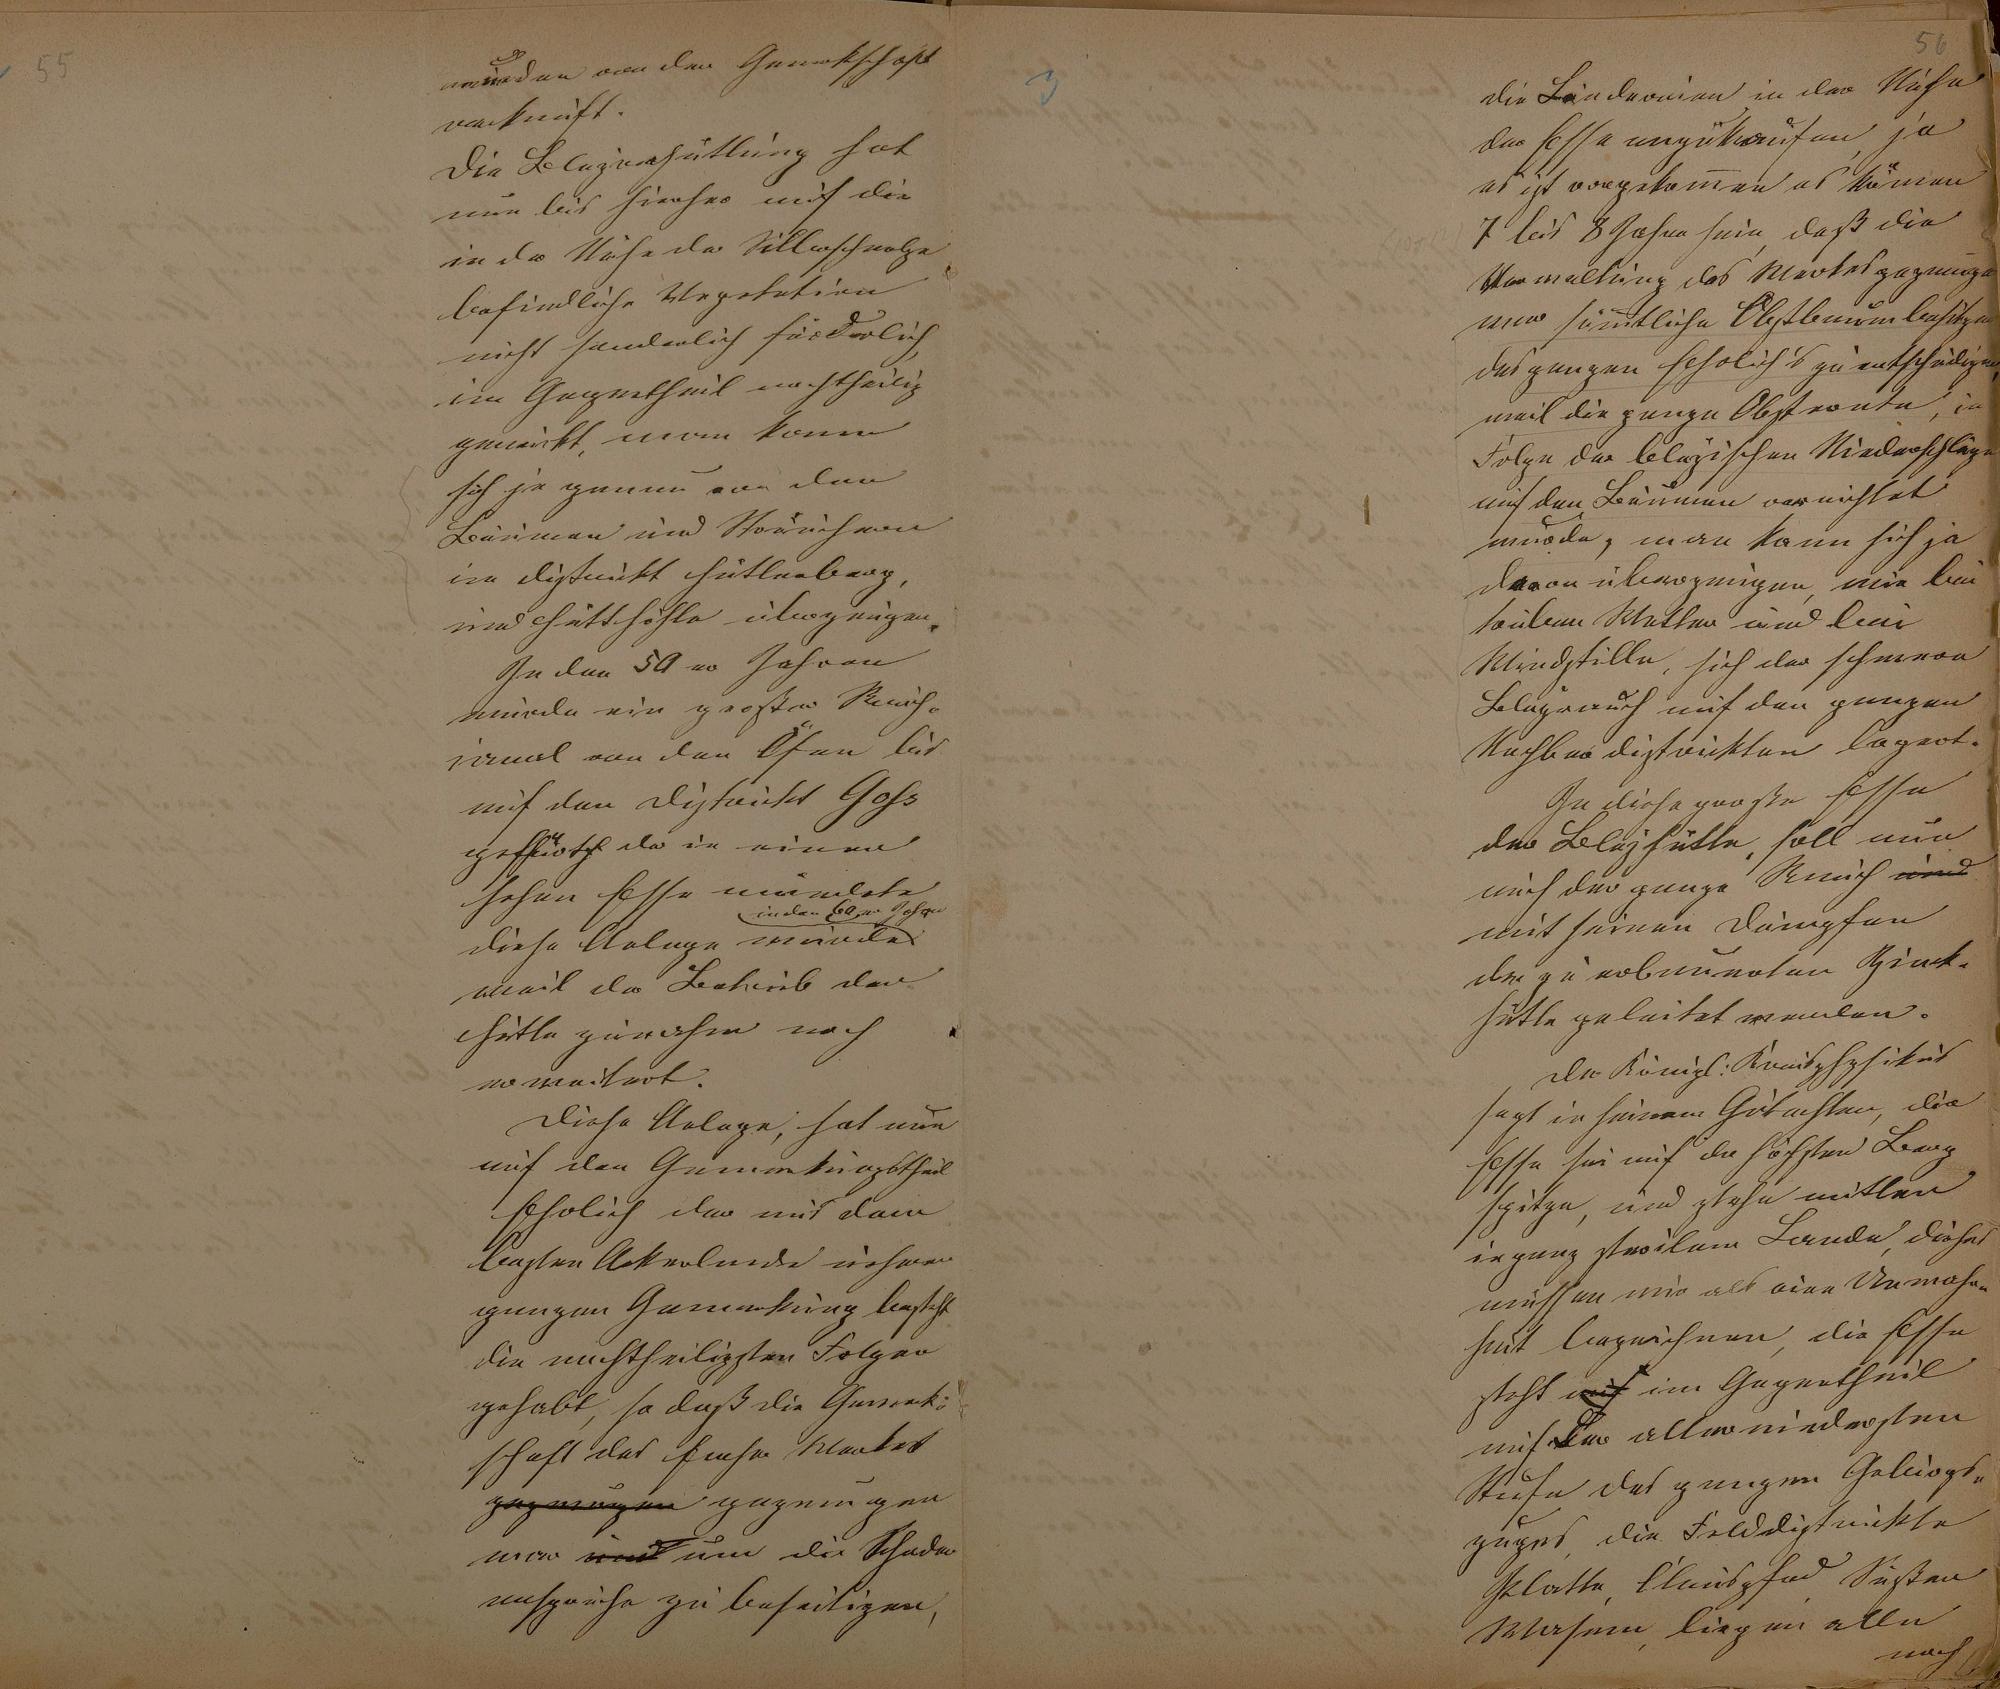 55
wurden von der Gewerkschaft
verkauft.
Die Bleyverhüttung hat
nun bis hierher auf die
in der Nähe der Silberschmelze
befindliche Vegetation
nicht sonderlich förderlich,
im Gegentheil nachtheilig
gewirkt, man kann
sich ja genau von den
Bäumen und Sträuchern
im Districkt Hüttenberg,
und Hütthöhle überzeugen.
In den 50er Jahren
wurde ein großer Rauch-
canal von den Öfen bis
auf den Districkt Gohs
geführt der in einer
hohen Esse mündete
in den 60er Jahren
diese Anlage wurde
weil der Betrieb der
Hütte zunahm noch
erweitert.
Diese Anlage, hat nun
auf den Gemarkungstheil
Ehrlich der aus dem
besten Ackerlande unserer
ganzen Gemarkung besteht
die nachtheiligsten Folgen
gehabt, so daß die Gewerk-
schaft des Emser Werkes
gezwungen gezwungen
war und um die Schaden
ansprüche zu beseitigen,
3
56
die Ländereien in der Nähe
der Esse anzukaufen, ja
es ist vorgekommen es können
7 bis 8 Jahre sein, daß die
Verwaltung des Werkes gezwungen
war sämtliche Obstbaumbesitzer
des ganzen Ehrlich's zu entschädigen,
weil die ganze Obsternte, in
Folge der bleyischen Niederschläge
auf den Bäumen vernichtet
wurde, man kann sich ja
davon überzeugen, wie bei
trübem Wetter und bei
Windstille, sich der schwere
Bleyrauch auf den ganzen
Nachbardistrickten lagert.
In diese große Esse
der Bleyhütte, soll nun
auch der ganze Rauch und
mit seinen Dämpfen
der zu erbauenten Zink-
hütte geleitet werden.
Der Königl: Kreisphysikus
sagt in seinem Gutachten, die
Esse sei auf der höchsten Berg
spitze, und stehe mitten
in ganz sterilem Lande, dieses
müssen wir als eine Unwahr-
heit bezeichnen, die Esse
steht auf im Gegentheil
auf der allerniedersten
Stufe des ganzen Gebirgs-
zuges, die Felddistrickte
Platte, Clauspfad, Süßen
Wasem, liegen alle
noch